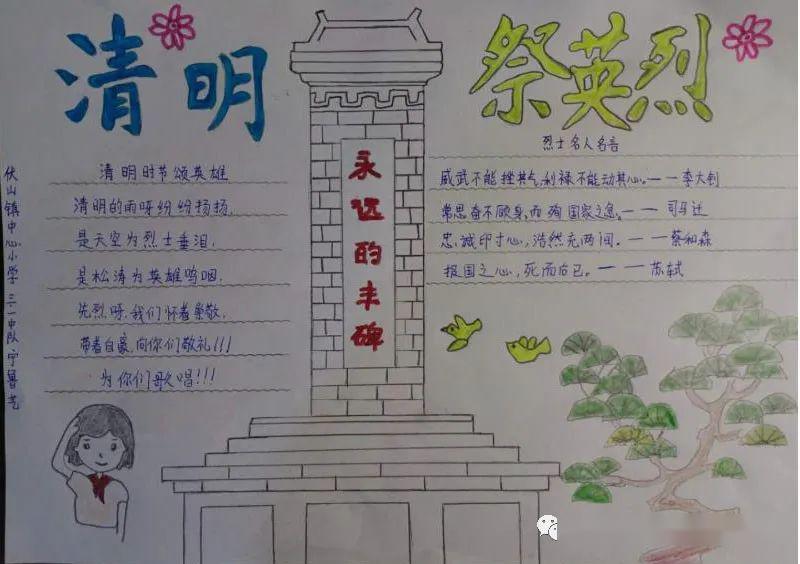 清明
祭英烈
永远的丰碑
清明时节颂英雄
清明的雨呀纷纷扬扬,
是天空为烈士垂泪,
是松清为英雄鸣咽,
先烈呀,我们怀着崇敬,
带着自豪,向你们敬礼!!!
为你们歌唱!!!
烈士名人名言
威武不能挫其气,利禄不能动其心。——李大钊
常思奋不顾身,而殉国家之急。——司马迁
忠诚印寸心,浩然充两间。——蔡和森
报国之心,死而后已。——苏轼
伏山镇中心小学 三.一中队 宁鲁艺